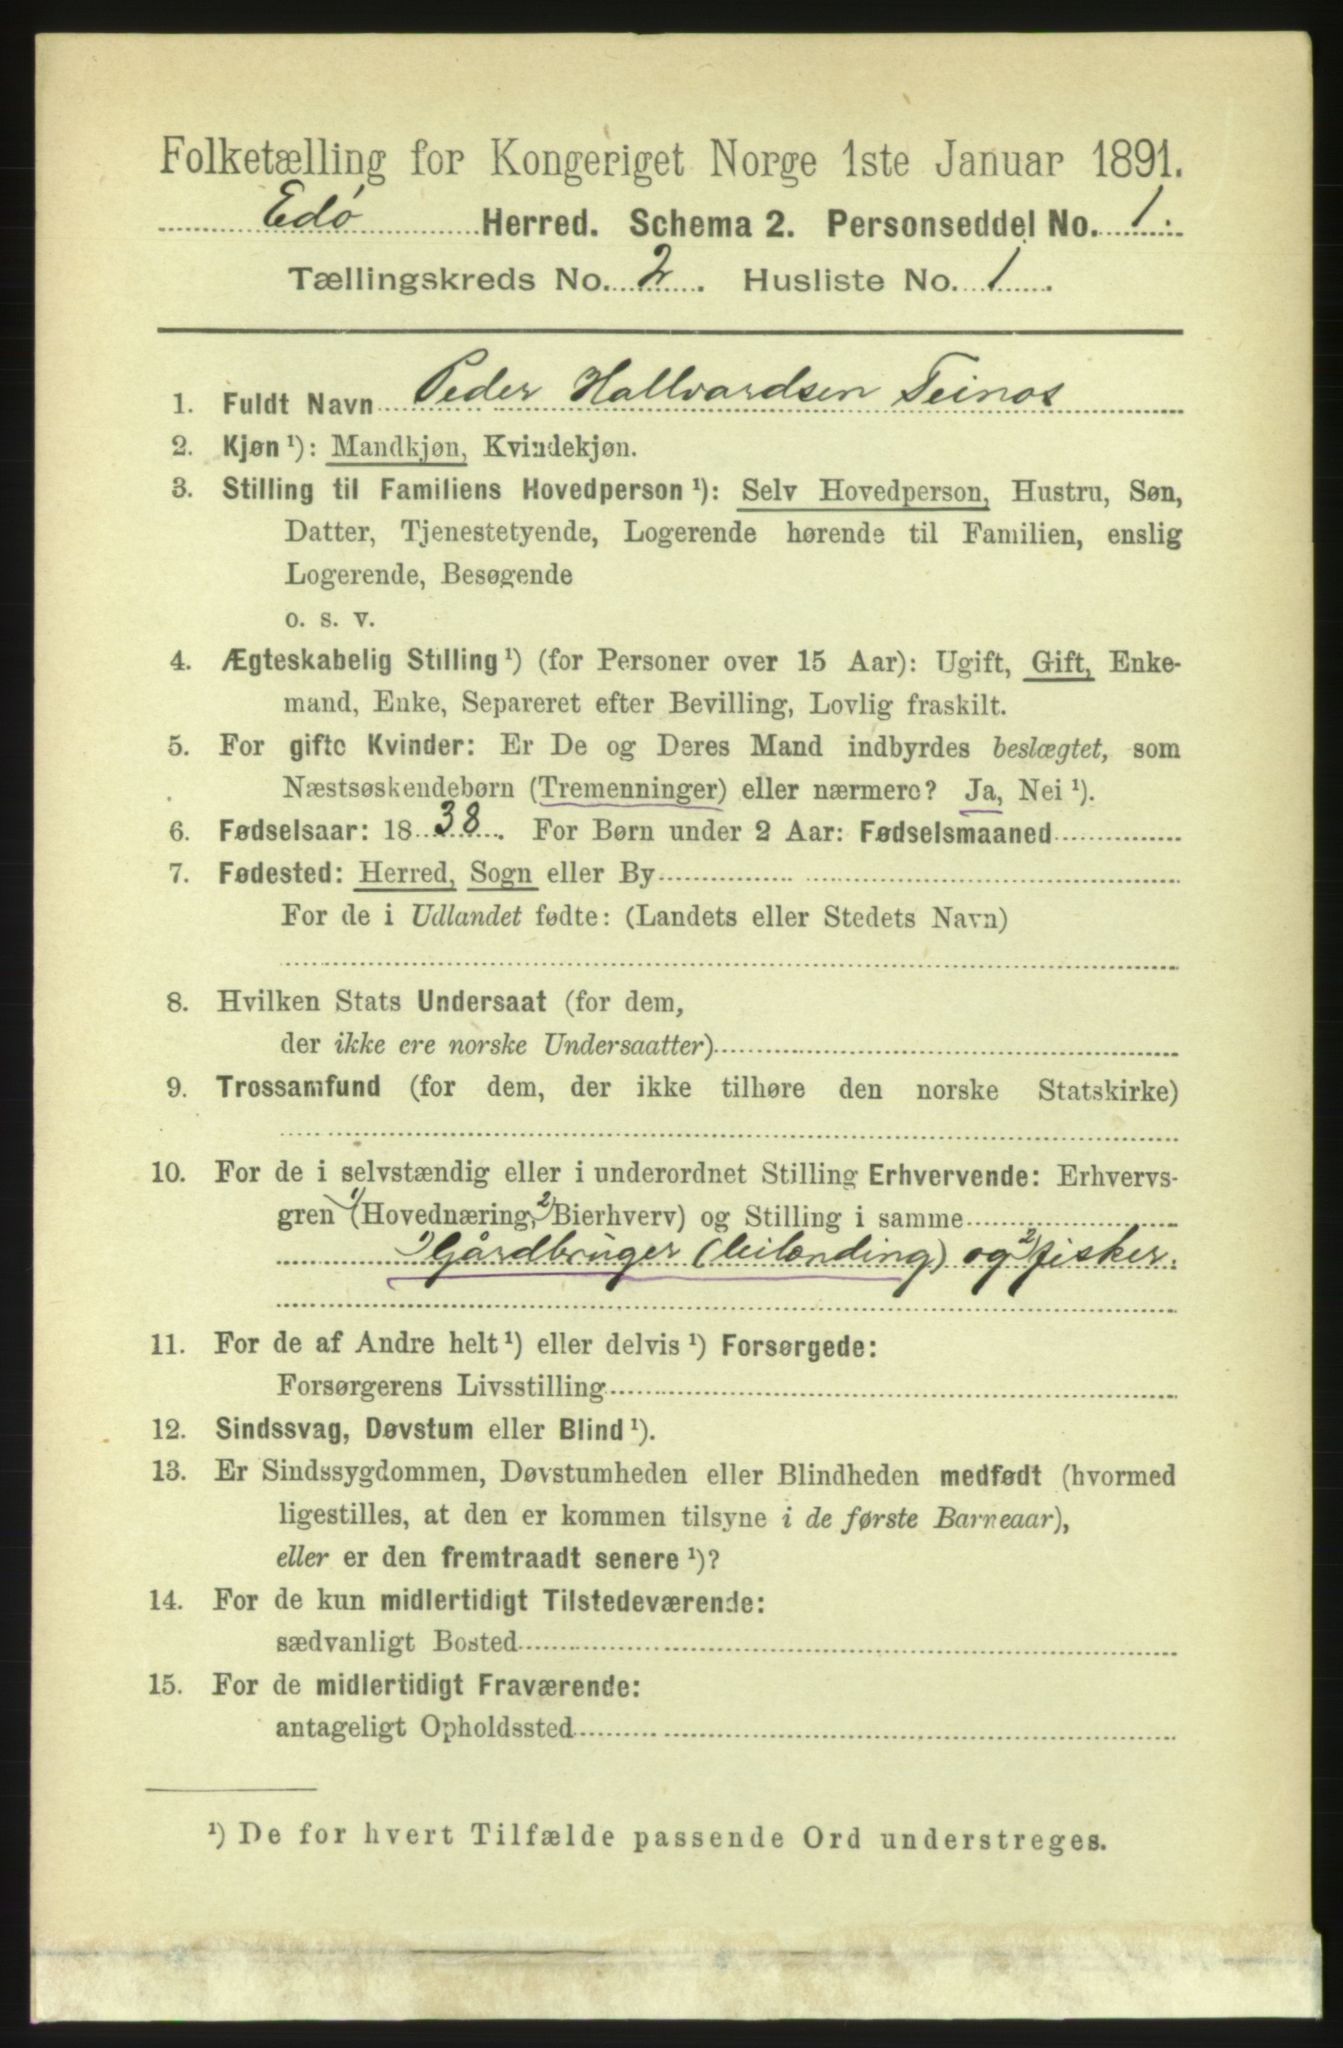 Folketælling for Kongeriget Norge 1ste Januar 1891.
Edø Herred. Schema 2. Personseddel No. 1.
Tællingskreds No. 2. Husliste No. 1.
1. Fuldt Navn Peder Hallvardsen Teinos
2. Kjøn ¹): Mandkjøn, Kvindekjøn.
3. Stilling til Familiens Hovedperson ¹): Selv Hovedperson, Hustru, Søn,
Datter, Tjenestetyende, Logerende hørende til Familien, enslig
Logerende, Besøgende
o. s. v.
4. Ægteskabelig Stilling ¹) (for Personer over 15 Aar): Ugift, Gift, Enke-
mand, Enke, Separeret efter Bevilling, Lovlig fraskilt.
5. For gifte Kvinder: Er De og Deres Mand indbyrdes beslægtet, som
Næstsøskendebørn (Tremenninger) eller nærmere? Ja, Nei ¹).
6. Fødselsaar: 1838. For Børn under 2 Aar: Fødselsmaaned
7. Fødested: Herred, Sogn eller By
For de i Udlandet fødte: (Landets eller Stedets Navn)
8. Hvilken Stats Undersaat (for dem,
der ikke ere norske Undersaatter)
9. Trossamfund (for dem, der ikke tilhøre den norske Statskirke)
10. For de i selvstændig eller i underordnet Stilling Erhvervende: Erhvervs-
gren ¹) (Hovednæring, ²) Bierhverv) og Stilling i samme
¹) Gårdbruger (leilænding) og ²) fisker.
11. For de af Andre helt ¹) eller delvis ¹) Forsørgede:
Forsørgerens Livsstilling
12. Sindssvag, Døvstum eller Blind ¹).
13. Er Sindssygdommen, Døvstumheden eller Blindheden medfødt (hvormed
ligestilles, at den er kommen tilsyne i de første Barneaar),
eller er den fremtraadt senere ¹)?
14. For de kun midlertidigt Tilstedeværende:
sædvanligt Bosted
15. For de midlertidigt Fraværende:
antageligt Opholdssted
¹) De for hvert Tilfælde passende Ord understreges.